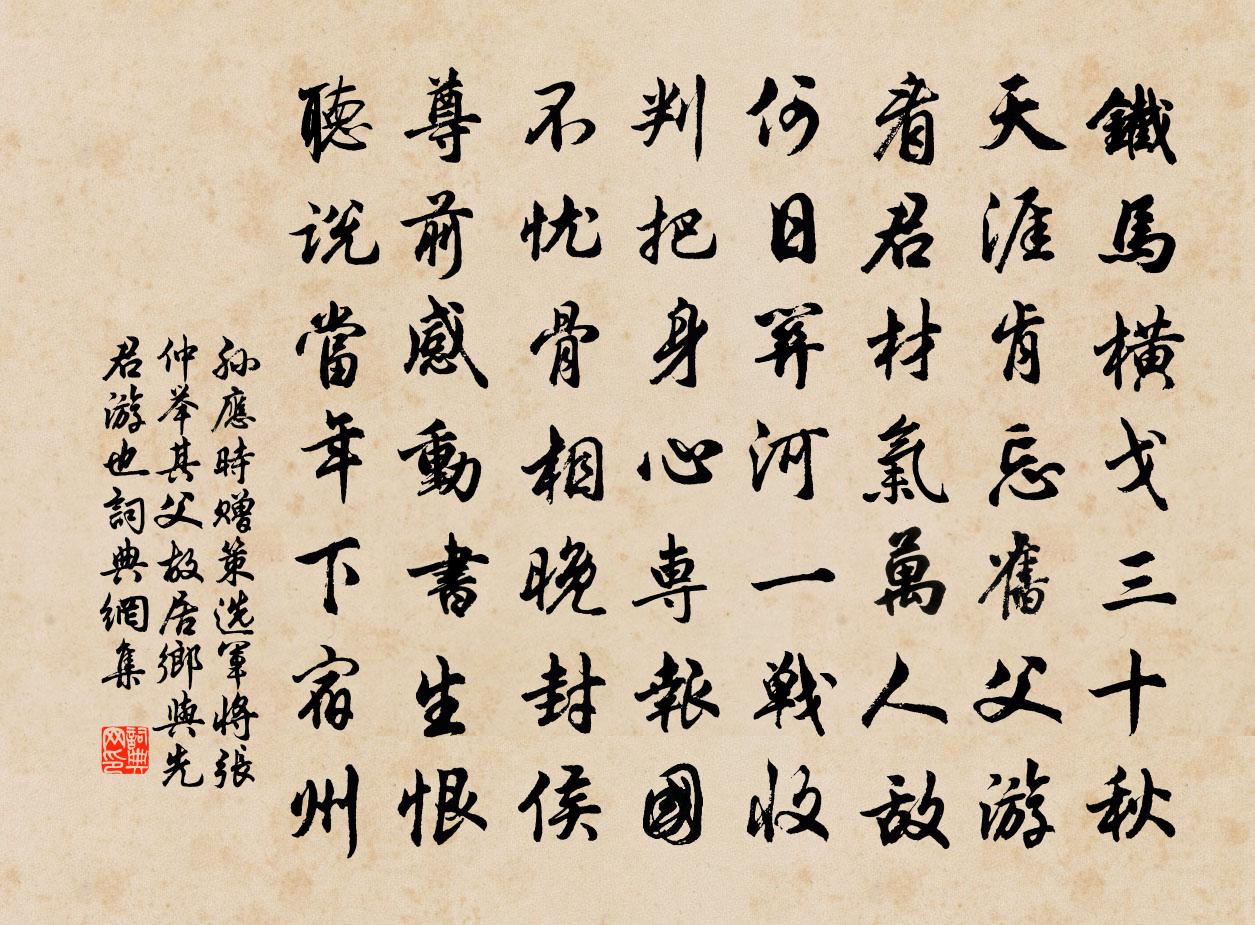 鐵馬橫戈三十秋
天涯肯忘舊父游
看君材氣萬人敵
何日關河一戰收
判把身心專報國
不忧骨相晚封侯
尊前感動書生恨
聽說當年下宿州
孙應時赠策选軍將張
仲举其父故居鄉與先
君游也詞典網集
詞典网印